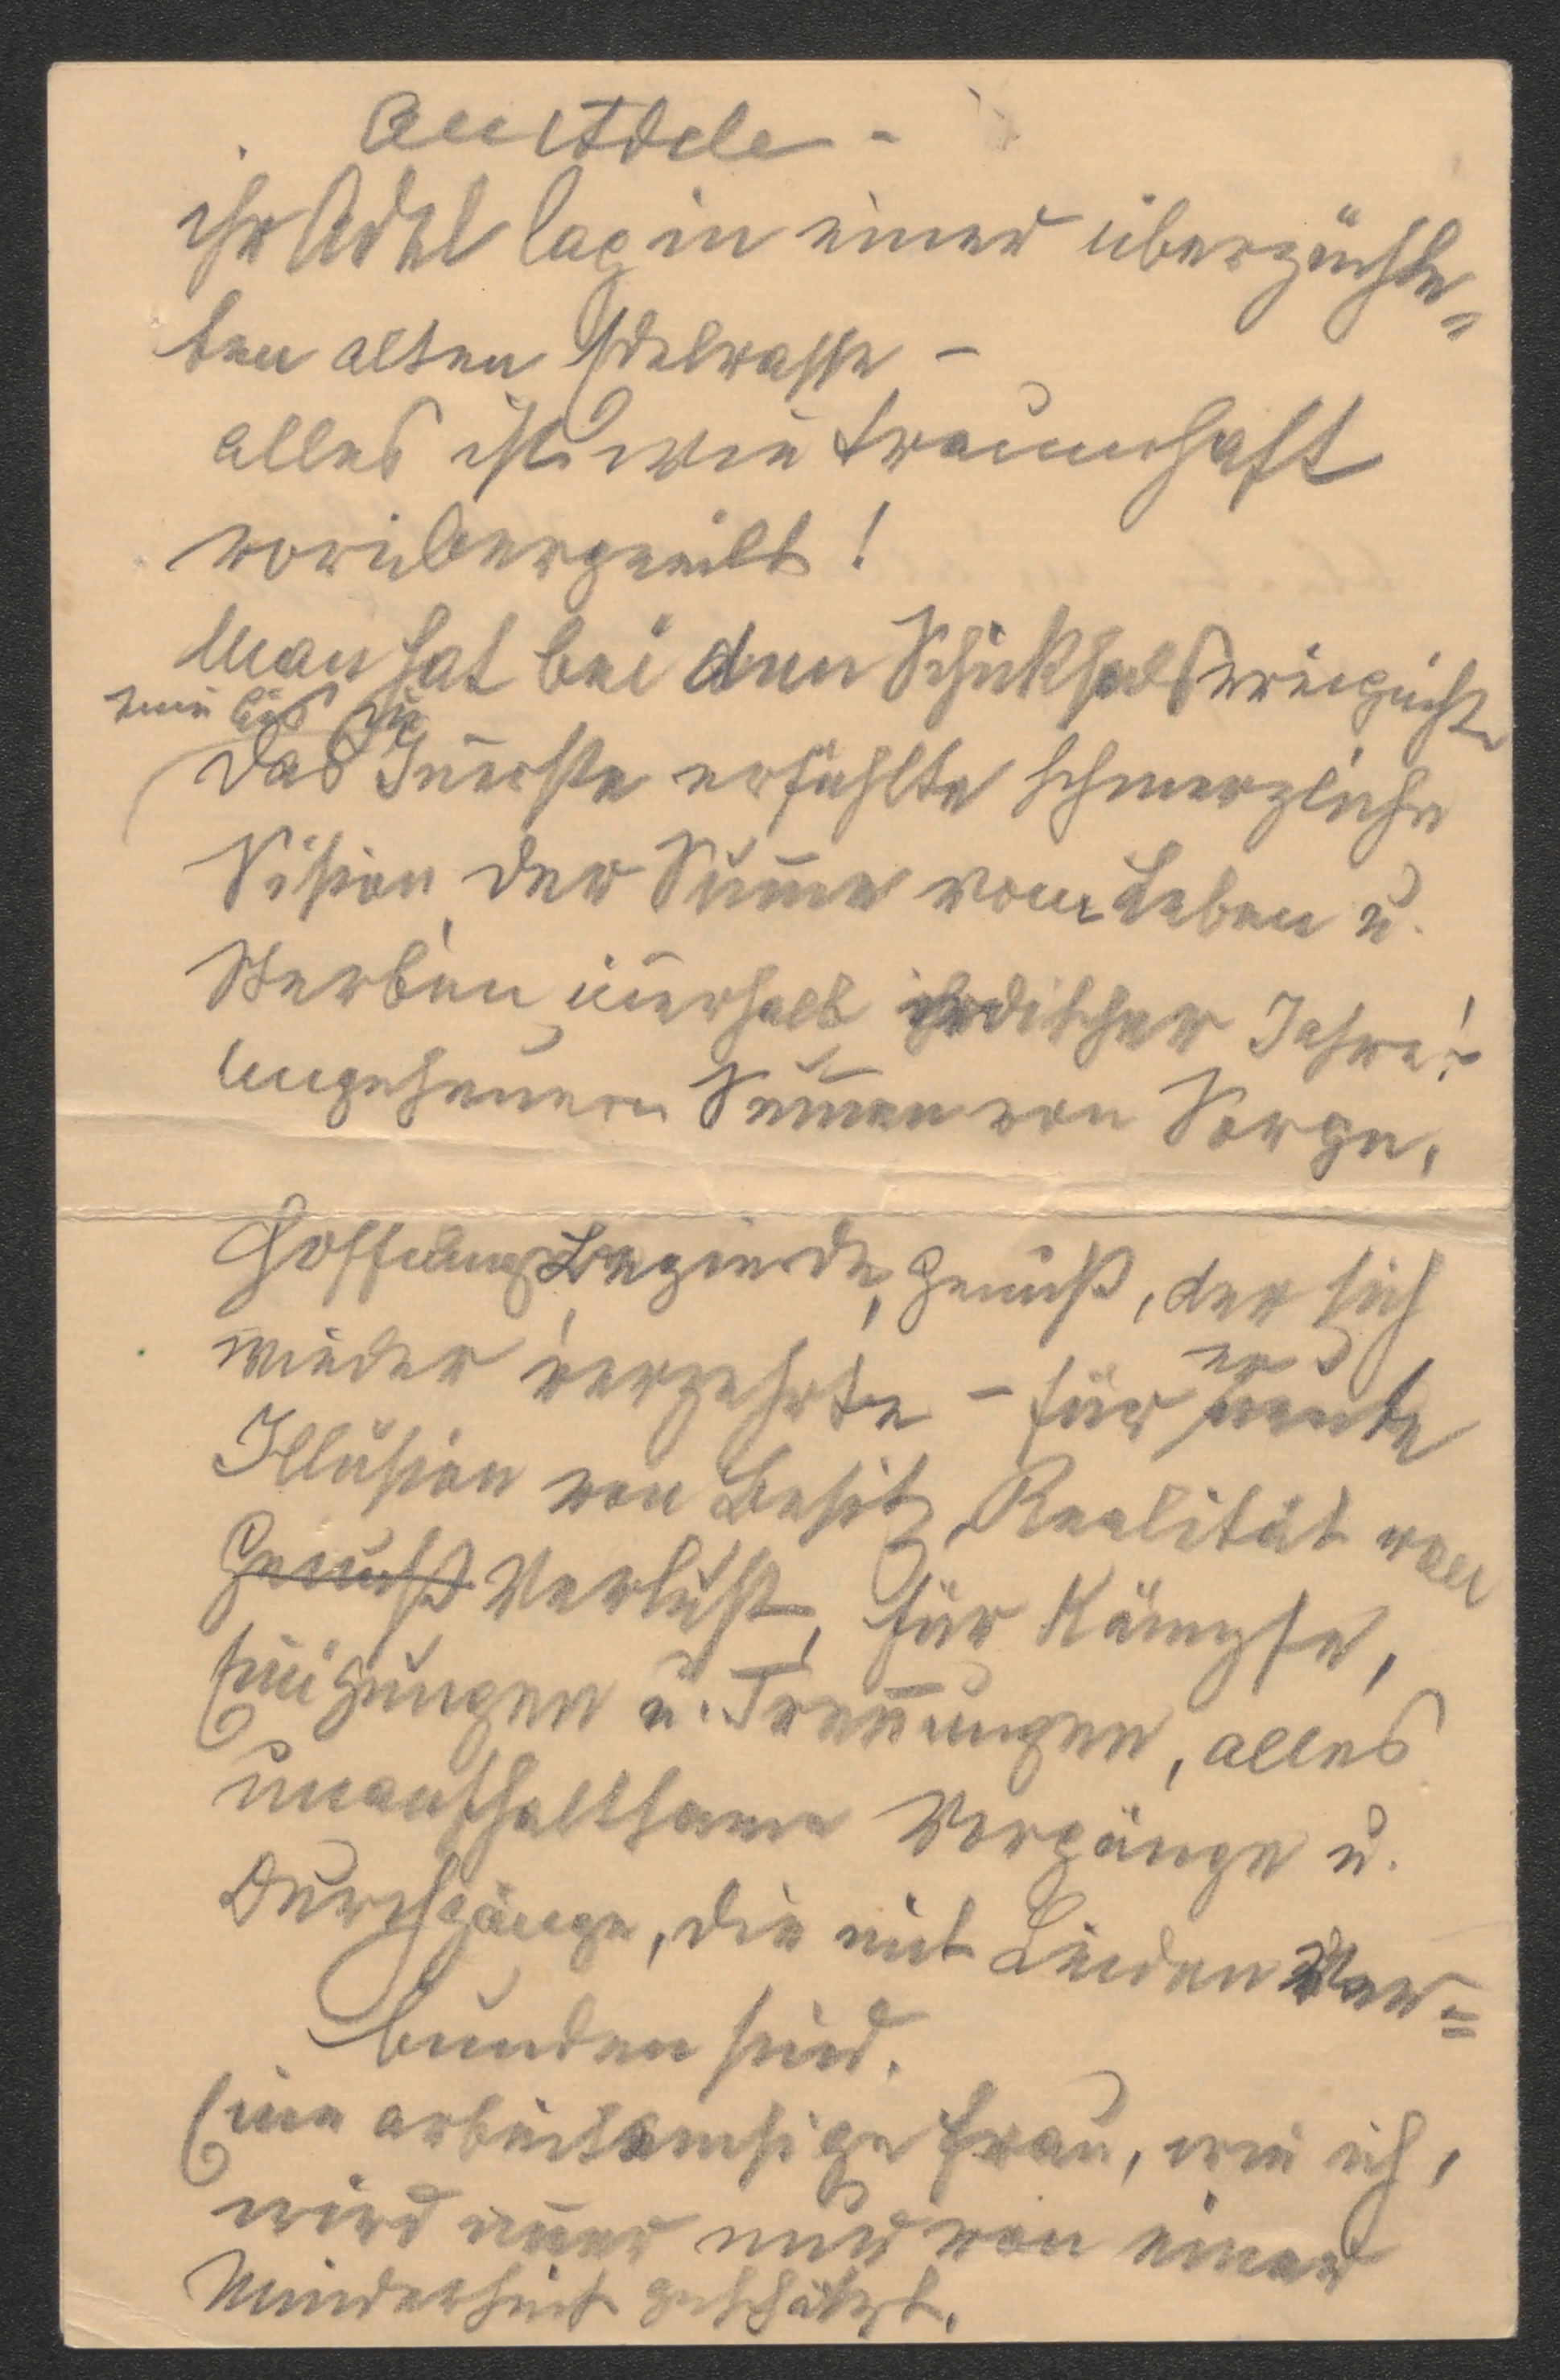 An Adele -
ihr Adel lag in einer überzüchte=
ten alten Edelrasse -
alles ist wie traumhaft
vorübergeeilt!
Man hat bei den Schicksals
wie bis in
das Innerste erfühlte schmerzliche
Vision der Summe vom Leben u.
Sterben innerhalb irdischer Jahre!
Ungeheuern Summen von Sorge,
Hoffnung Begierde, Genuß, der sich
wieder verzehrte - für er
Illusion von Besitz, Realität von
Genuß Verlust, für Kämpfe,
Einigungen u. Trennungen, alles
unaufhaltsame Vorgänge u.
Durchgänge, die mit Leiden ver=
bunden sind.
Eine arbeitsemsige Frau, wie ich,
wird immer nur von einer
Minderheit geschätzt.